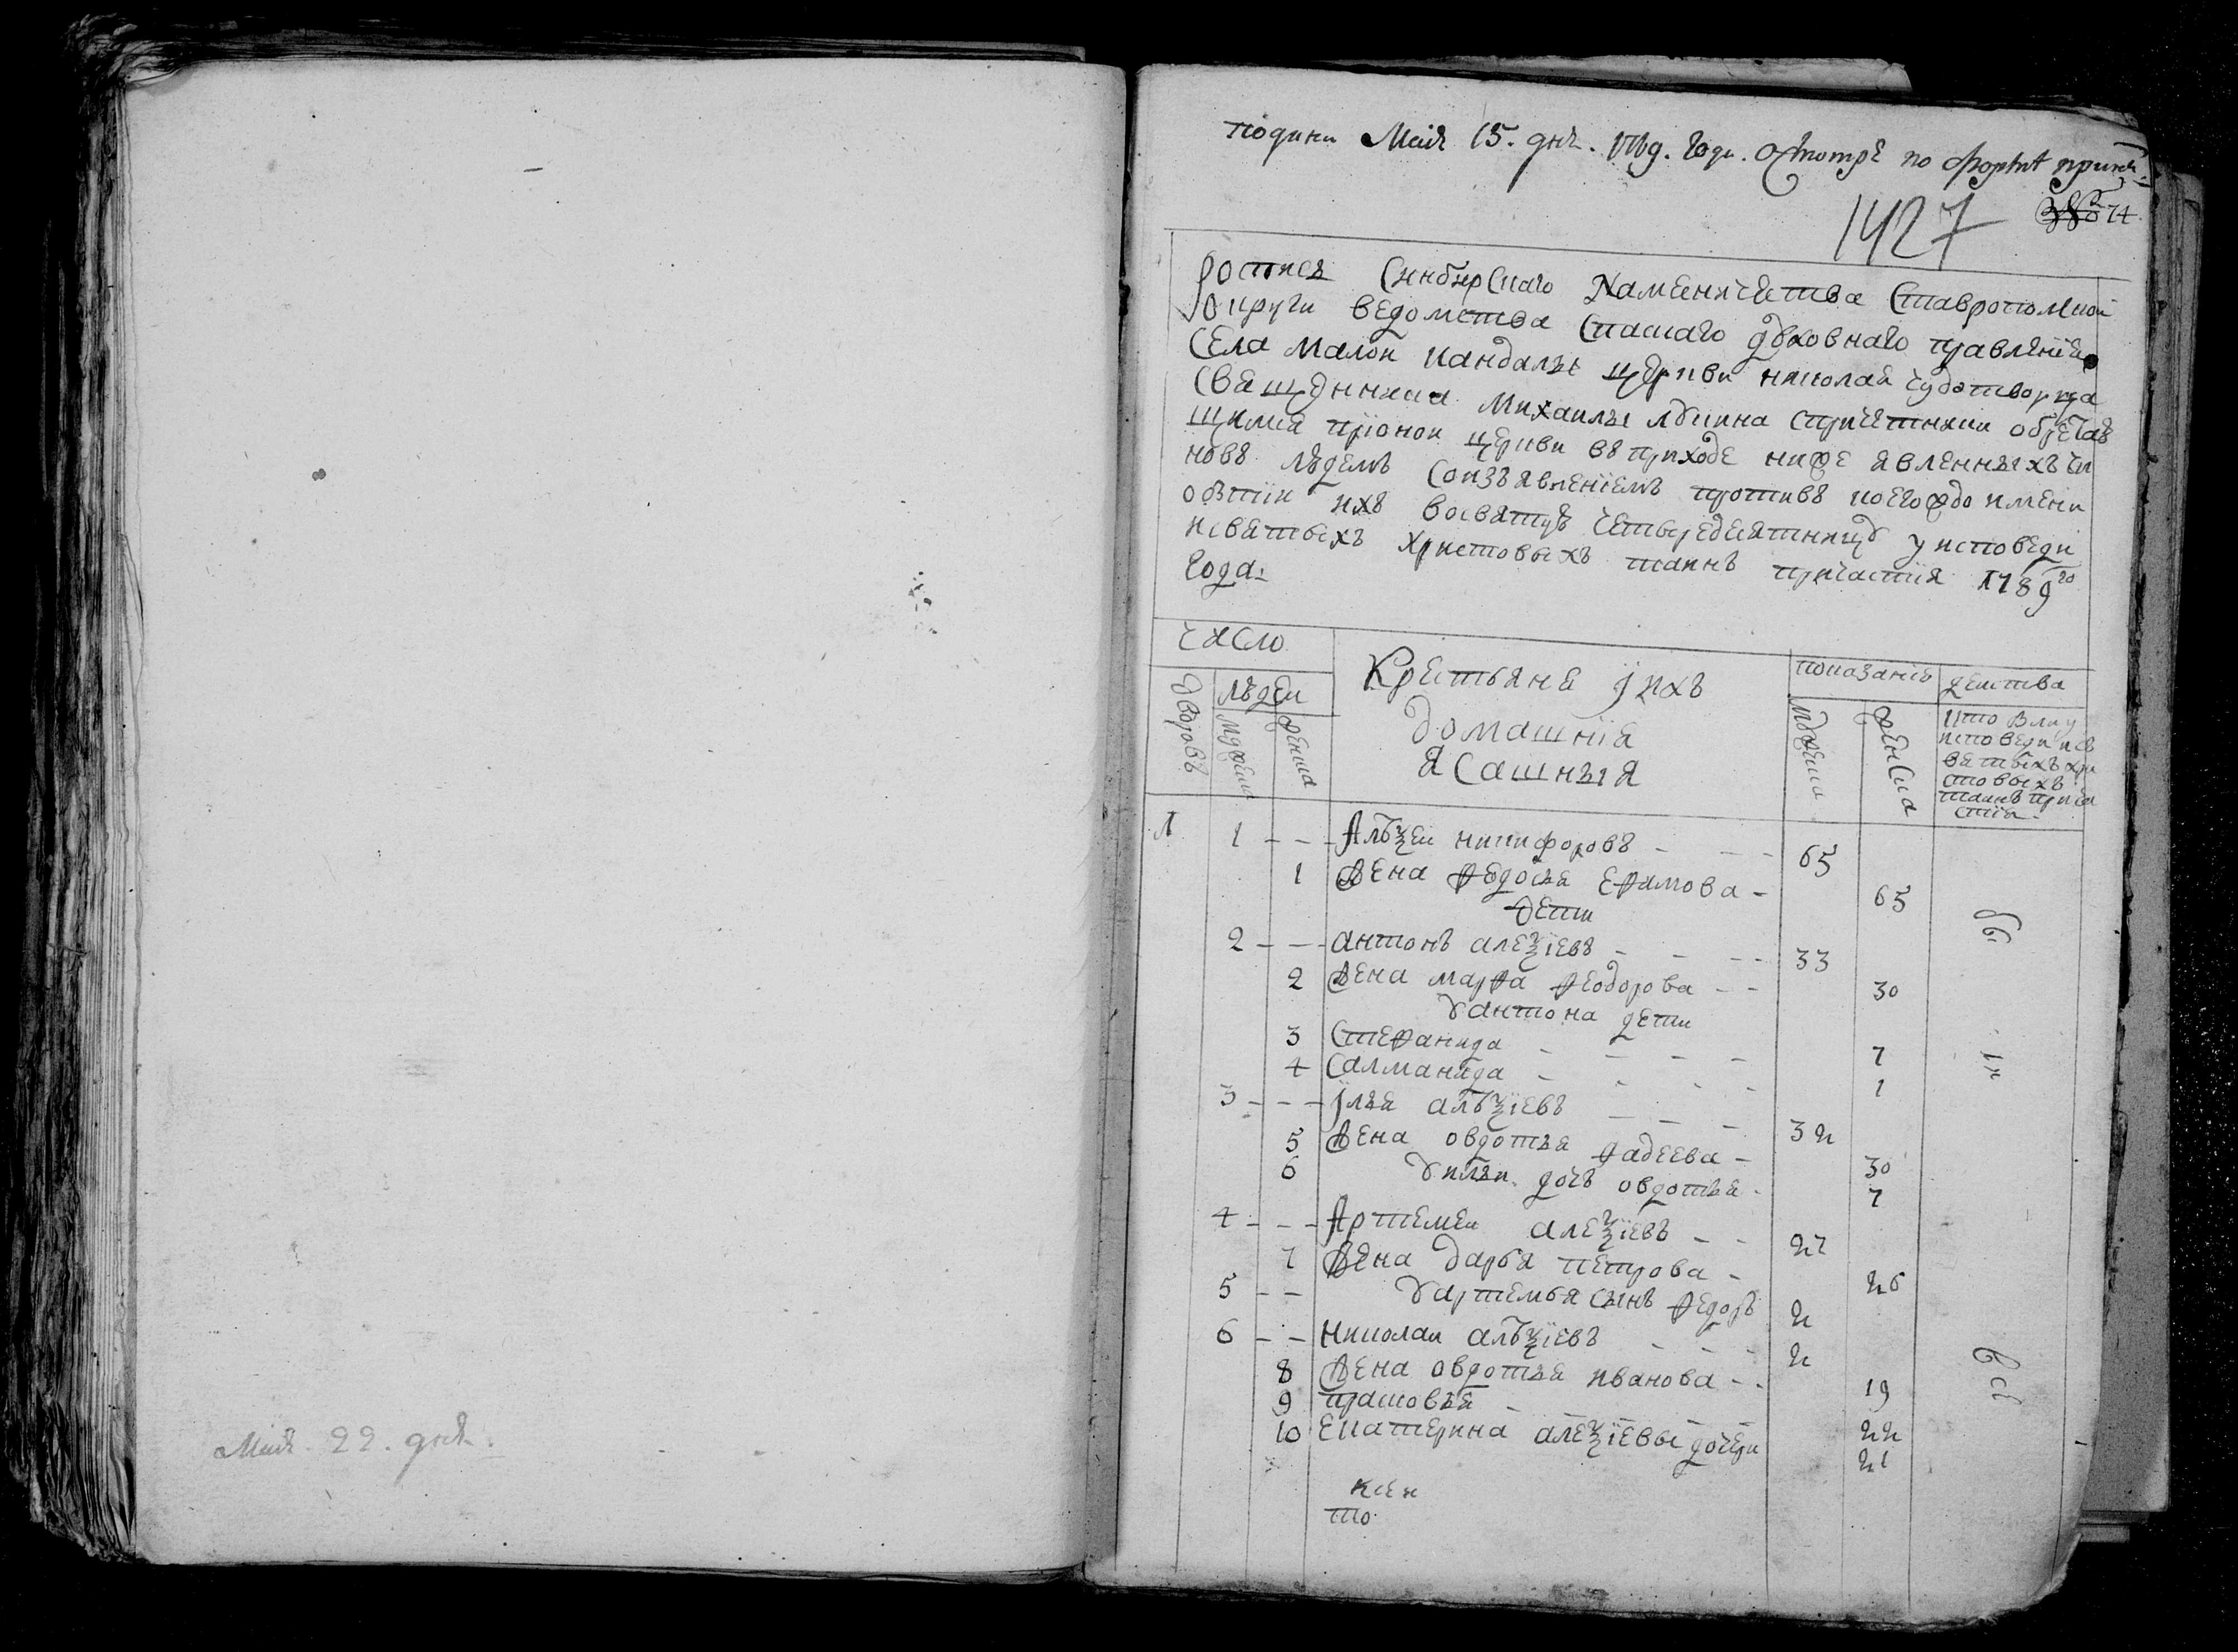 Маія 22. дня.
подана Маія 15. дня. 1789. года. о смотре по форме
1427
74
Роспись Синбирскаго Наменичества Ставрополской
округи ведомства Спаскаго духовнаго правления
Села Малой Кандалы церкви николая чудотворца
Священника Михаилы лукина спричетники обретаю
щимися прионой церкви въ приходе ниже явленныхъ чи
новъ людемъ соизъявлениемъ противъ коегождо имени
о бытіи ихъ восвятую четыредесятницу у исповеди
исвятыхъ христовыхъ таинъ причастия 1789го
Года:
число
Крестьяне и ихъ
домашнія
Ясашныя
показание
действа
Дворовъ
людей
мужеска
женска
мужеска
женска
кто былъ у
исповеди исъ
вятыхъ хри
стовыхъ
таинъ прича
стія
1 1 - - - Алѣѯеи никифоровъ - - - 65
1 Жена Федосья Ефимова - 65
Дети
2 - - - антонъ алеѯіевъ - - - 33
2 Жена марфа феодорова - - 30
У антона дети
3 Стефанида - - - - 7
4 Салманида - - - - 1
3 - - - Илья алѣѯіевъ - - - 32
5 Жена овдотья фадеева - 30
6 У ильи дочь овдотья - 7
4 - - - Артемеи алеѯіевъ - - 27
7 Жена дарья петрова - 26
5 - - У артемья сынъ Федоръ 2
6 - - николаи алѣѯіевъ - - - 2
8 Жена овдотья иванова - - 19
9 прасковья - - - - - 22
10 Екатерина алеѯіевы дочери 21
бы
ли
всѣ